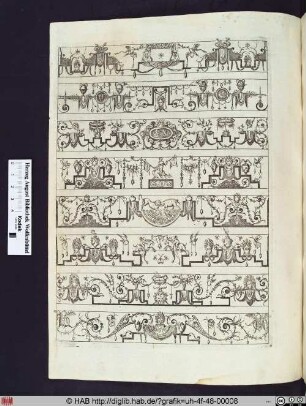 Herzog August Bibliothek Wolfenbüttel
Kodak
© HAB http://diglib.hab.de/?grafik=uh-4f-48-00008